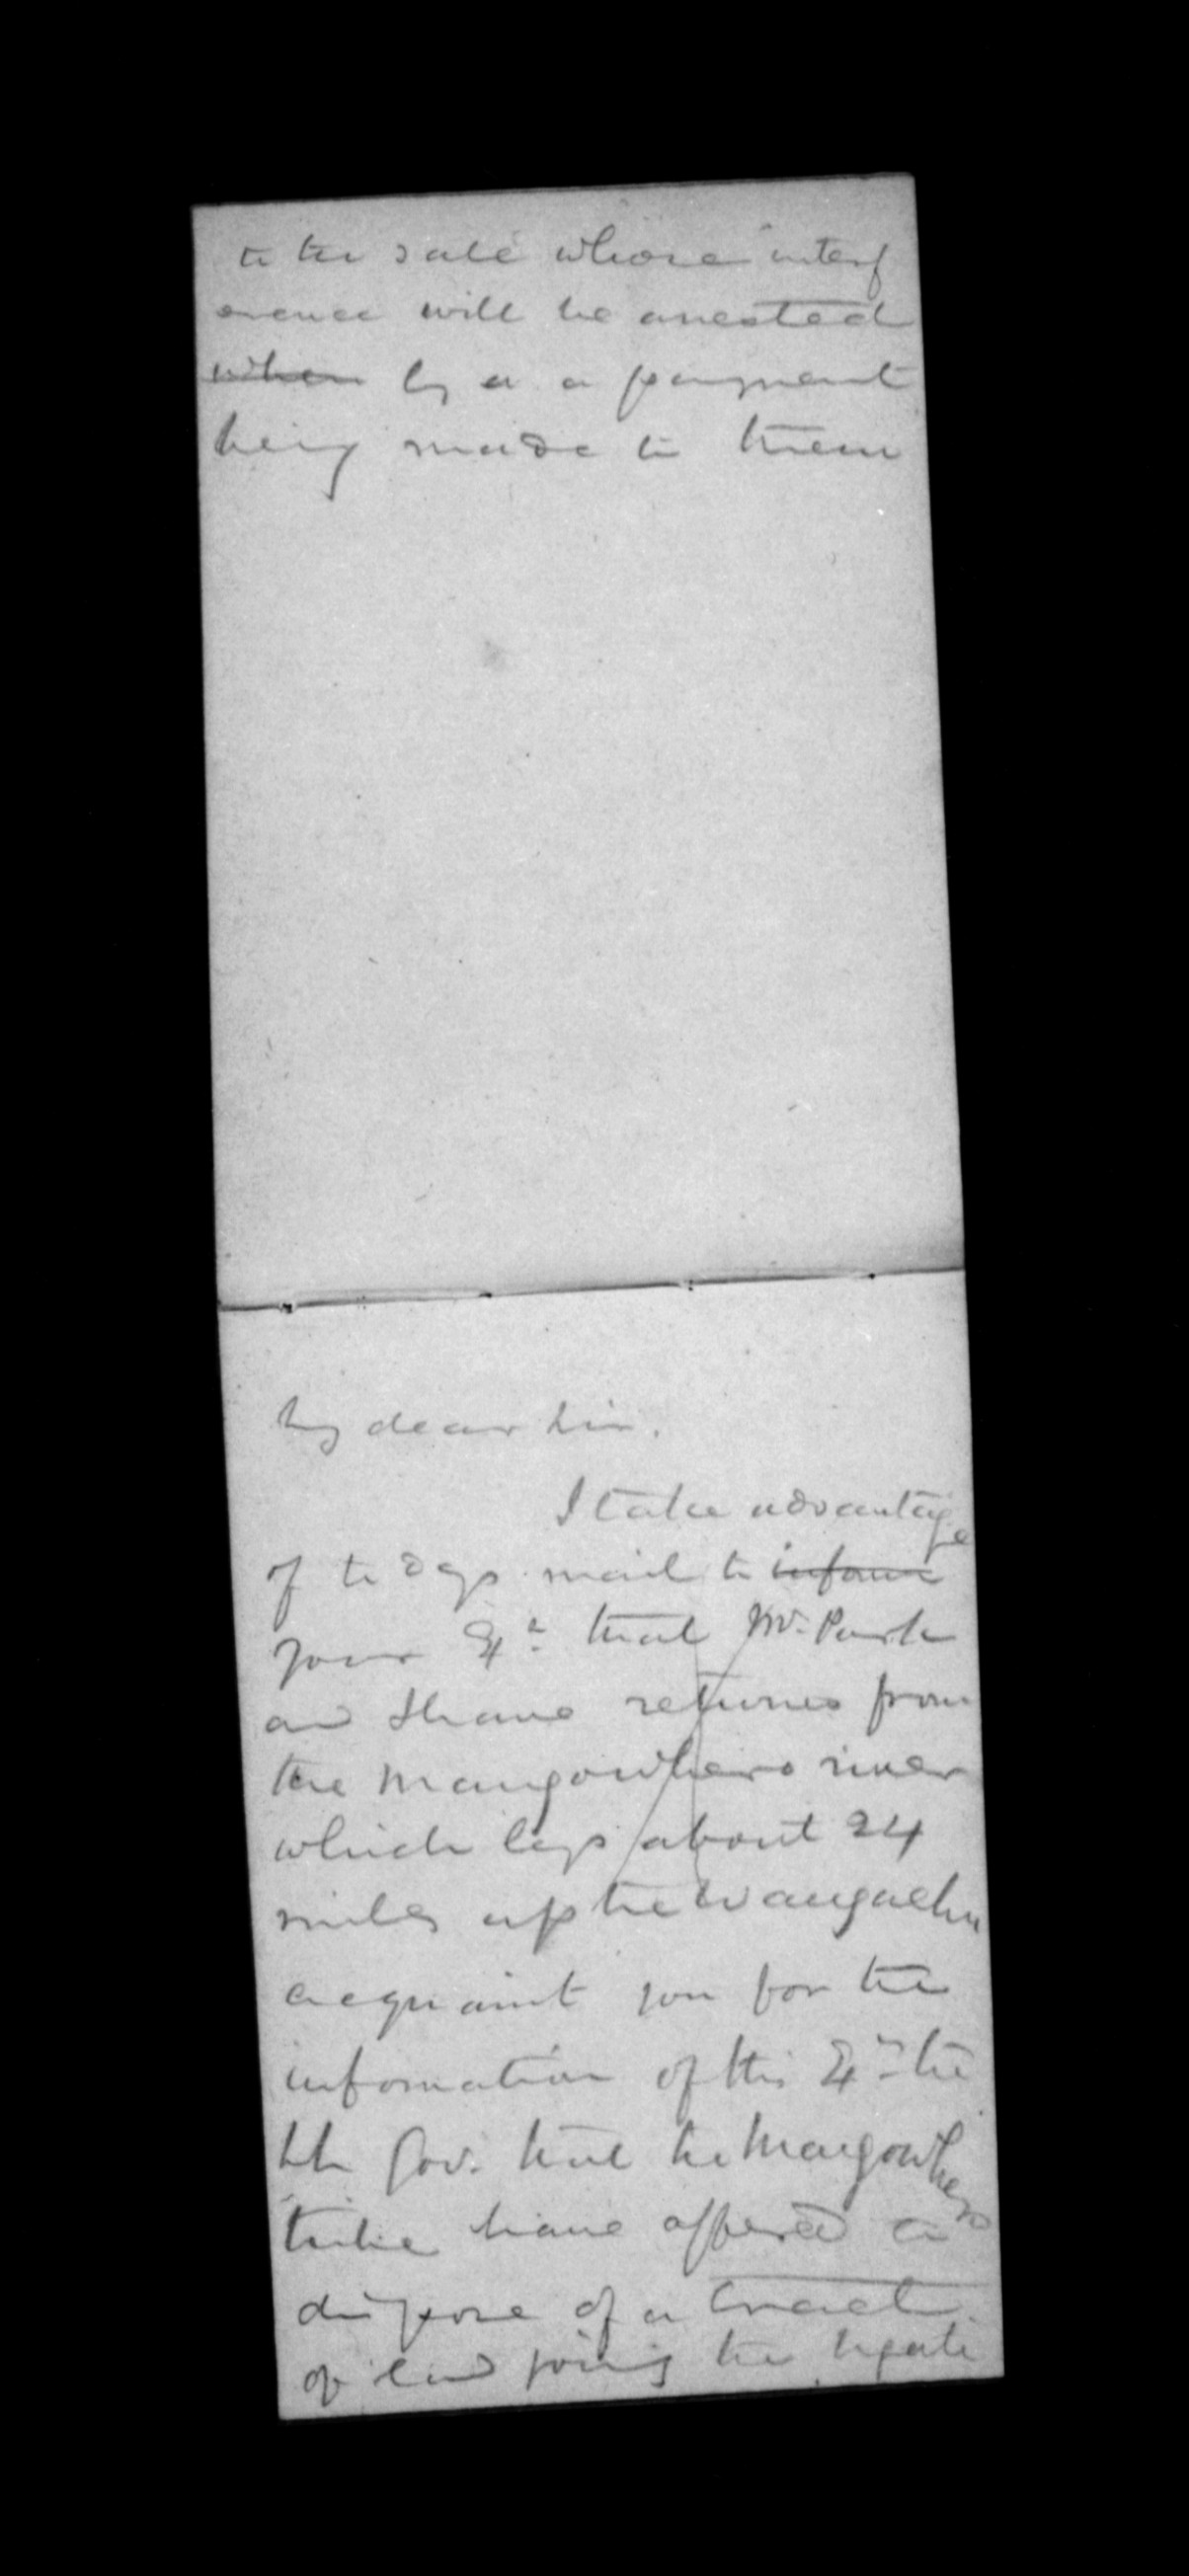 to the sale whose interf
erence will be arrested
when by a a payment
being made to them
My dear Sir.
I take advantage
of to days mail to inform
your Ex that Mr. Park
and I have returned from
the Mangowhero river
which lays about 24
miles up the Wangaehu
acquaint you for the
information of His Ex the
Lt Gov. that the Mangowhero
tribe have offered to
dispose of a tract
of land joining the Ngati